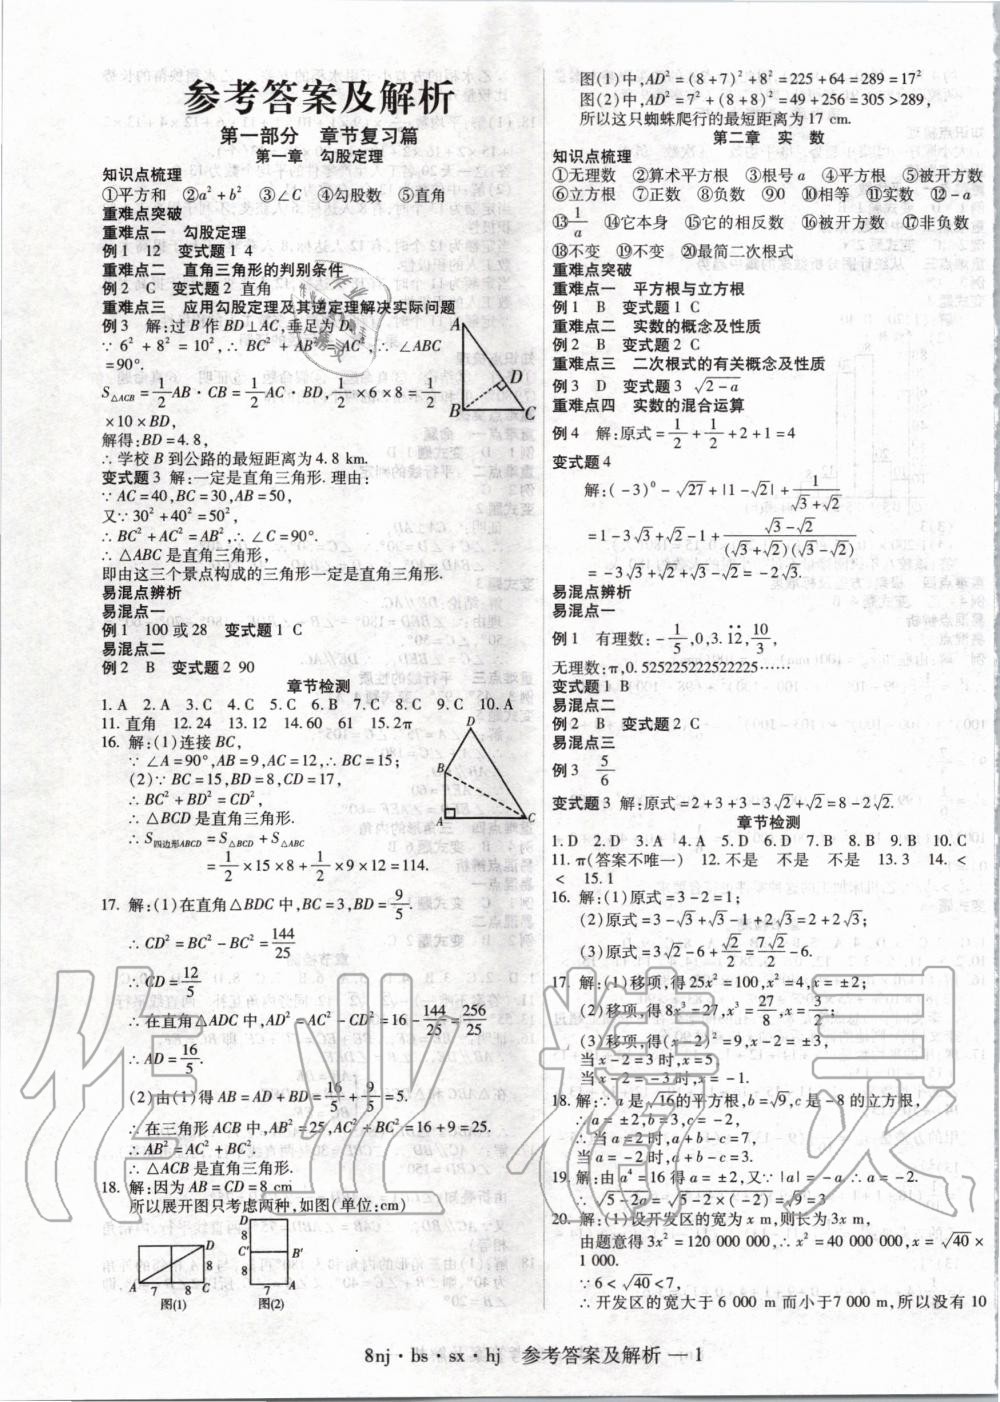 参考答案及解析
第一部分　章节复习篇
第一章　勾股定理
知识点梳理
①平方和　②a²+b²　③∠C　④勾股数　⑤直角
重难点突破
重难点一　勾股定理
例1　12　变式题1　4
重难点二　直角三角形的判别条件
例2　C　变式题2　直角
重难点三　应用勾股定理及其逆定理解决实际问题
例3　解:过B作BD⊥AC,垂足为D,
∵6²+8²=10²,∴BC²+AB²=AC²,∴∠ABC
=90°.
S△ACB=1/2AB·CB=1/2AC·BD,1/2×6×8=1/2
×10×BD,
解得:BD=4.8,
∴学校B到公路的最短距离为4.8 km.
变式题3　解:一定是直角三角形.理由:
∵AC=40,BC=30,AB=50,
又∵30²+40²=50²,
∴BC²+AC²=AB²,∴∠C=90°.
∴△ABC是直角三角形,
即由这三个景点构成的三角形一定是直角三角形.
易混点辨析
易混点一
例1　100或28　变式题1　C
易混点二
例2　B　变式题2　90
章节检测
1.A　2.A　3.C　4.C　5.C　6.B　7.C　8.C　9.C　10.A
11.直角　12.24　13.12　14.60　61　15.2π
16.解:(1)连接BC,
∵∠A=90°,AB=9,AC=12,∴BC=15;
(2)∵BC=15,BD=8,CD=17,
∴BC²+BD²=CD²,
∴△BCD是直角三角形.
∴S四边形ABCD=S△BCD+S△ABC
=1/2×15×8+1/2×9×12=114.
17.解:(1)在直角△BDC中,BC=3,BD=9/5.
∴CD²=BC²-BC²=144/25
∴CD=12/5
∴在直角△ADC中,AD²=AC²-CD²=16-144/25=256/25
∴AD=16/5.
(2)由(1)得AB=AD+BD=16/5+9/5=5.
∴在三角形ACB中,AB²=25,AC²+BC²=16+9=25.
∴AB²=AC²+BC².
∴△ACB是直角三角形.
18.解:因为AB=CD=8 cm
所以展开图只考虑两种,如图(单位:cm)
A B C D
A B C D
D 8 8 A 7 8 C
图(1)
D 8 C' B' 8 A 7 B
图(2)
图(1)中,AD²=(8+7)²+8²=225+64=289=17²
图(2)中,AD²=7²+(8+8)²=49+256=305>289,
所以这只蜘蛛爬行的最短距离为17 cm.
第二章　实　数
知识点梳理
①无理数　②算术平方根　③根号a　④平方根　⑤被开方数
⑥立方根　⑦正数　⑧负数　⑨0　⑩相等　⑪实数　⑫-a
⑬1/a　⑭它本身　⑮它的相反数　⑯被开方数　⑰非负数
⑱不变　⑲不变　⑳最简二次根式
重难点突破
重难点一　平方根与立方根
例1　B　变式题1　C
重难点二　实数的概念及性质
例2　B　变式题2　C
重难点三　二次根式的有关概念及性质
例3　D　变式题3　√(2-a)
重难点四　实数的混合运算
例4　解:原式=1/2+1/2+2+1=4
变式题4
解:(-3)⁰-√27+|1-√2|+1/(√3+√2)
=1-3√3+√2-1+(√3-√2)/((√3+√2)(√3-√2))
=-3√3+√2+√3-√2=-2√3.
易混点辨析
易混点一
例1　有理数:-1/5,0,3.1̇2̇,10/3,
无理数:π,0.525225222522225……
变式题1　B
易混点二
例2　B　变式题2　C
易混点三
例3　5/6
变式题3　解:原式=2+3+3-3√2+√2=8-2√2.
章节检测
1.D　2.D　3.A　4.A　5.D　6.D　7.B　8.B　9.B　10.C
11.π(答案不唯一)　12.不是　不是　不是　13.3　14.<
<　15.1
16.解:(1)原式=3-2=1;
(2)原式=3-√3+√3-1+2√3=2+2√3;
(3)原式=3√2-6+√2/2=7√2/2-6.
17.解:(1)移项,得25x²=100,x²=4,x=±2;
(2)移项,得8x³=27,x³=27/8,x=3/2;
(3)移项,得(x-2)²=9,x-2=±3,
当x-2=3时,x=5,
当x-2=-3时,x=-1.
18.解:∵a是√16的平方根,b=√9,c是-8的立方根,
∴a=±2,b=3,c=-2,
∴当a=2时,a+b-c=7,
当a=-2时,a+b-c=3.
19.解:由a⁴=16得a=±2,又∵|a|=-a,∴a=-2.
∴√(5-2a)=√(5-2×(-2))=√9=3
20.解:(1)设开发区的宽为x m,则长为3x m,
由题意得3x²=120 000 000,∴x²=40 000 000,x=√40×
1 000.
∵6<√40<7,
∴开发区的宽大于6 000 m而小于7 000 m,所以没有10
8nj·bs·sx·hj　参考答案及解析—1
作业精灵